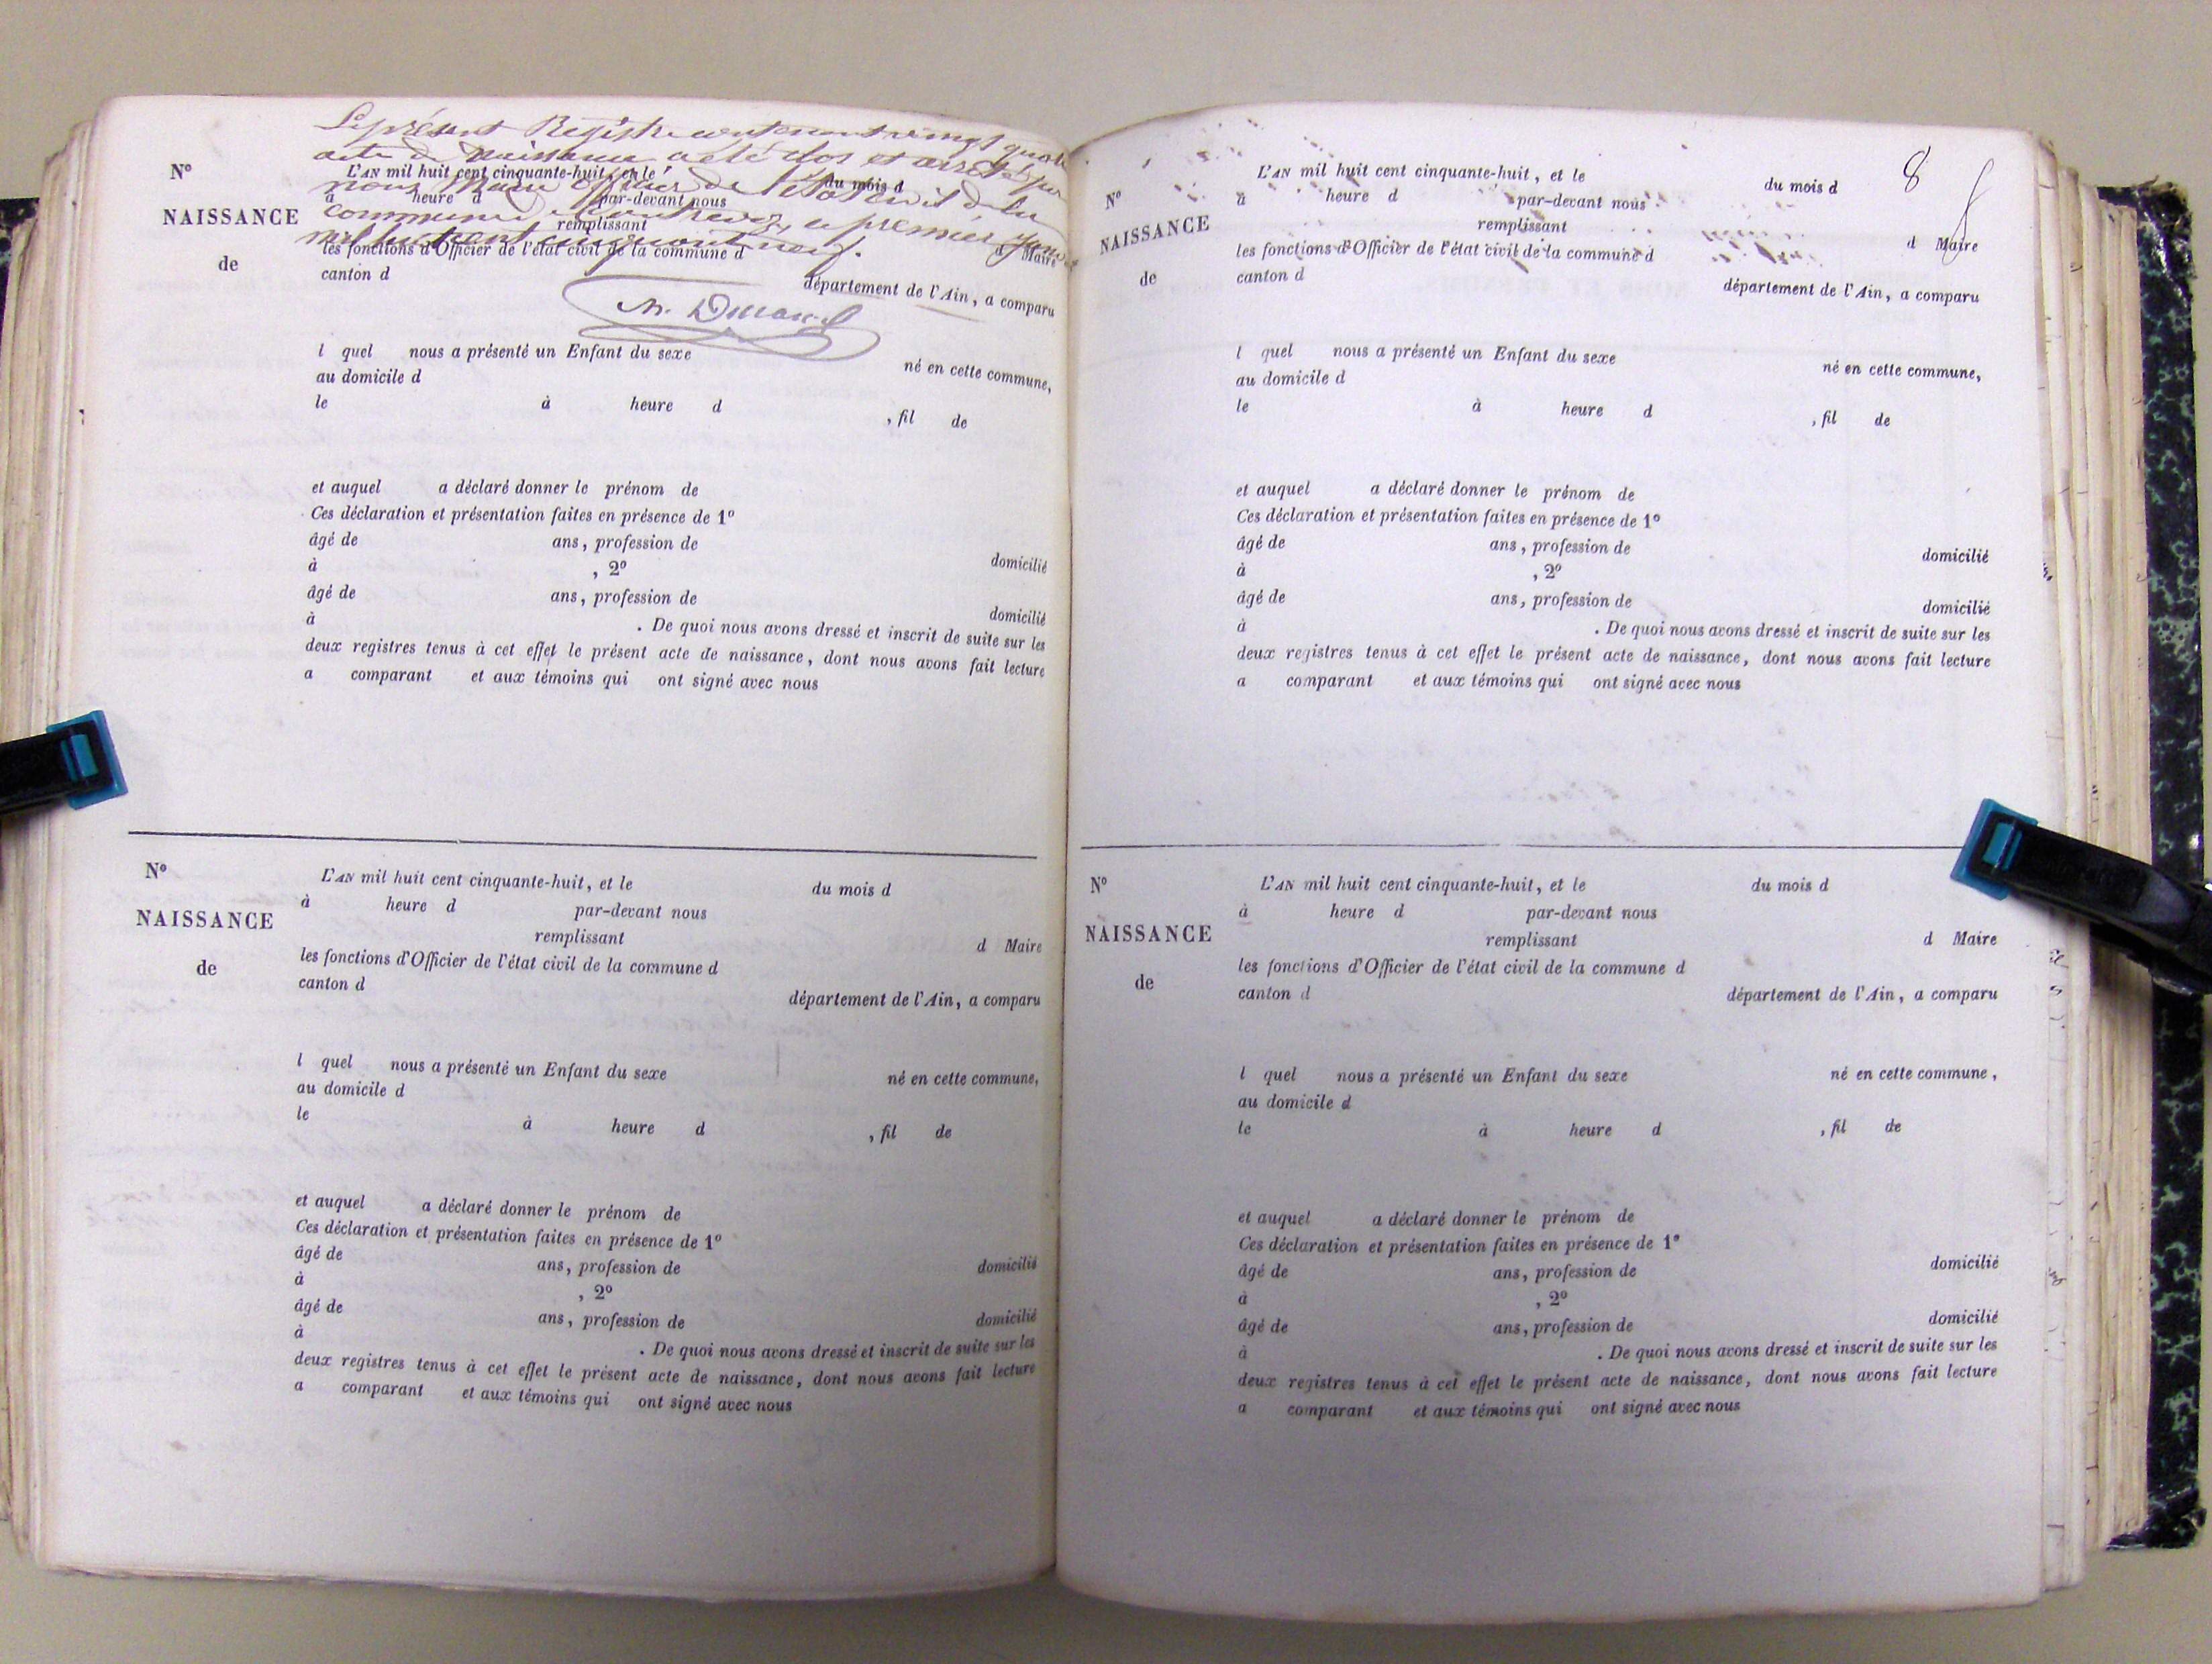 Le présent Registre contenant vingt quatre
acte de naissance a été clos et arrêté par
nous Maire officier de l'état civil de la
commune de ce premier Janvier
mil huit cent cinquante neuf.
M. Durand
N°
NAISSANCE
de
L'AN mil huit cent cinquante-huit, et le du mois d
à heure d par-devant nous
remplissant d Maire
les fonctions d'Officier de l'état civil de la commune d
canton d département de l'Ain, a comparu
l quel nous a présenté un Enfant du sexe né en cette commune,
au domicile d
le à heure d , fil de
et auquel a déclaré donner le prénom de
Ces déclaration et présentation faites en présence de 1°
âgé de ans, profession de domicilié
à , 2°
âgé de ans, profession de domicilié
à . De quoi nous avons dressé et inscrit de suite sur les
deux registres tenus à cet effet le présent acte de naissance, dont nous avons fait lecture
a comparant et aux témoins qui ont signé avec nous
N°
NAISSANCE
de
L'AN mil huit cent cinquante-huit, et le du mois d
à heure d par-devant nous
remplissant d Maire
les fonctions d'Officier de l'état civil de la commune d
canton d département de l'Ain, a comparu
l quel nous a présenté un Enfant du sexe né en cette commune,
au domicile d
le à heure d , fil de
et auquel a déclaré donner le prénom de
Ces déclaration et présentation faites en présence de 1°
âgé de ans, profession de domicilié
à , 2°
âgé de ans, profession de domicilié
à . De quoi nous avons dressé et inscrit de suite sur les
deux registres tenus à cet effet le présent acte de naissance, dont nous avons fait lecture
a comparant et aux témoins qui ont signé avec nous
8
N°
NAISSANCE
de
L'AN mil huit cent cinquante-huit, et le du mois d
à heure d par-devant nous
remplissant d Maire
les fonctions d'Officier de l'état civil de la commune d
canton d département de l'Ain, a comparu
l quel nous a présenté un Enfant du sexe né en cette commune,
au domicile d
le à heure d , fil de
et auquel a déclaré donner le prénom de
Ces déclaration et présentation faites en présence de 1°
âgé de ans, profession de domicilié
à , 2°
âgé de ans, profession de domicilié
à . De quoi nous avons dressé et inscrit de suite sur les
deux registres tenus à cet effet le présent acte de naissance, dont nous avons fait lecture
a comparant et aux témoins qui ont signé avec nous
N°
NAISSANCE
de
L'AN mil huit cent cinquante-huit, et le du mois d
à heure d par-devant nous
remplissant d Maire
les fonctions d'Officier de l'état civil de la commune d
canton d département de l'Ain, a comparu
l quel nous a présenté un Enfant du sexe né en cette commune,
au domicile d
le à heure d , fil de
et auquel a déclaré donner le prénom de
Ces déclaration et présentation faites en présence de 1°
âgé de ans, profession de domicilié
à , 2°
âgé de ans, profession de domicilié
à . De quoi nous avons dressé et inscrit de suite sur les
deux registres tenus à cet effet le présent acte de naissance, dont nous avons fait lecture
a comparant et aux témoins qui ont signé avec nous